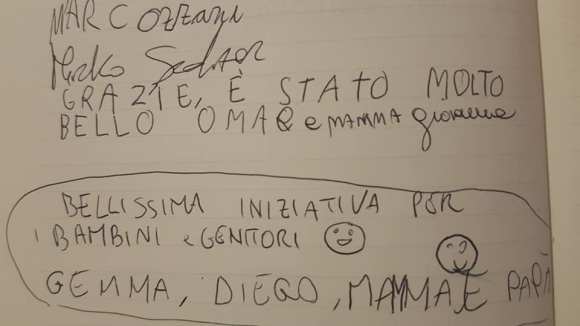 MARCO
Mirko
GRAZIE, È STATO MOLTO
BELLO OMAR e MAMMA giovanna
BELLISSIMA INIZIATIVA PER
BAMBINI e GENITORI
GEMMA, DIEGO, MAMMA E PAPÀ